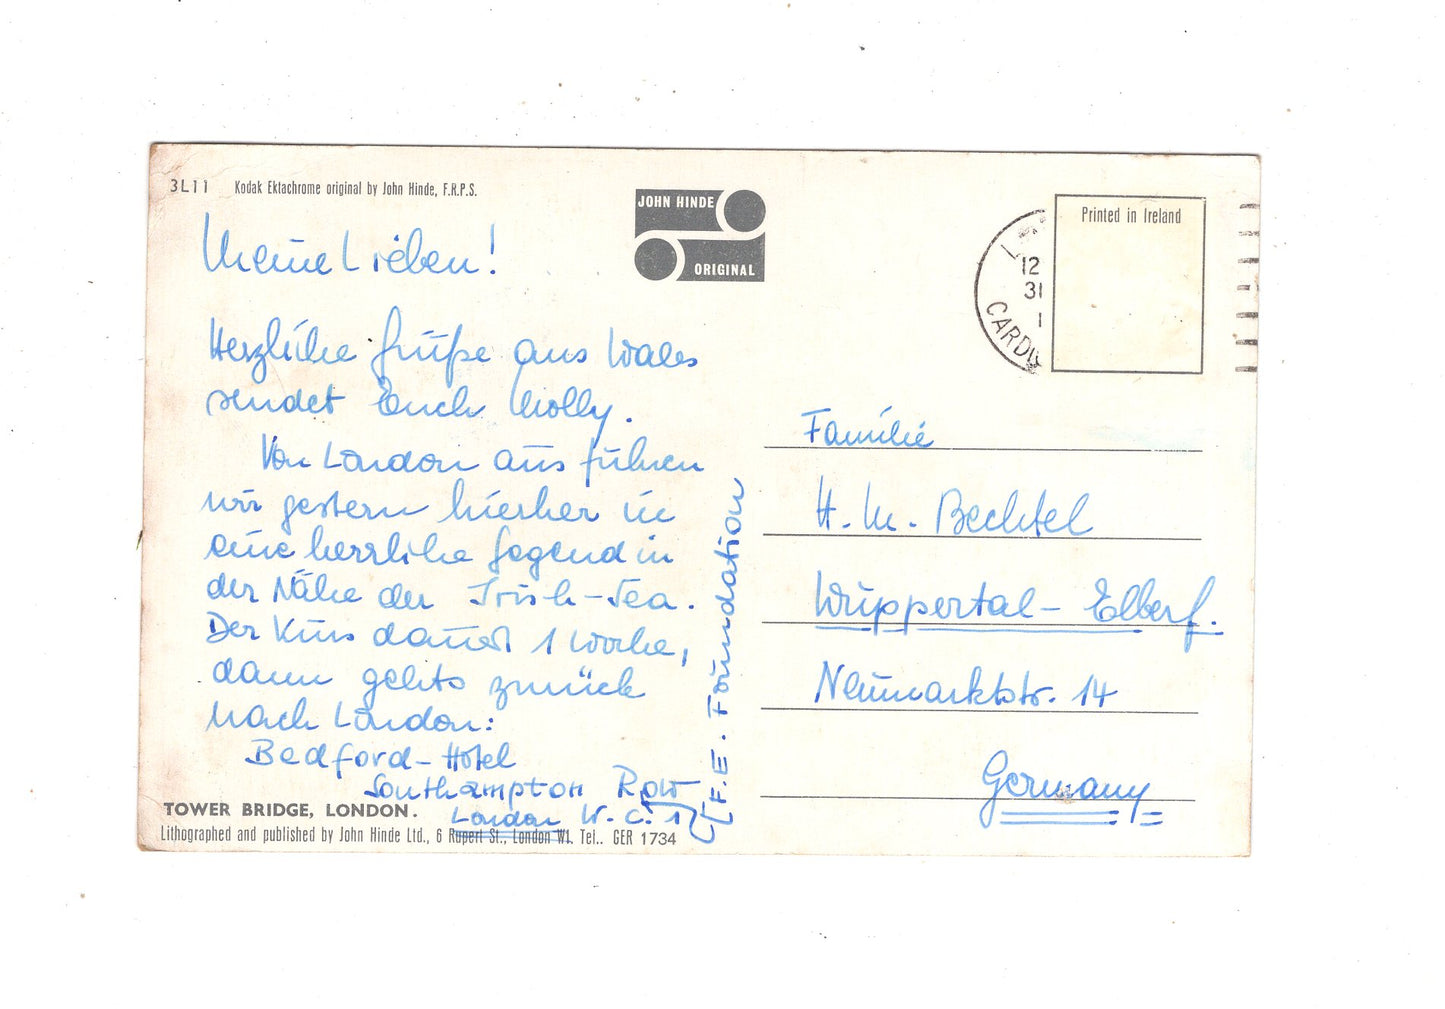 3L11 Kodak Ektachrome original by John Hinde, F.R.P.S.
JOHN HINDE
ORIGINAL
Printed in Ireland
12
31
1
CARD
Meine Lieben!
Herzliche Grüße aus Wales
sendet Euch Molly.
Von London aus fuhren
wir gestern hierher in
eine herrliche Gegend in
der Nähe der Irish-Sea.
Der Kurs dauert 1 Woche,
dann gehts zurück
nach London:
Bedford-Hotel
Southampton Row
London W.C.1
(F.E. Foundation
TOWER BRIDGE, LONDON.
Lithographed and published by John Hinde Ltd., 6 Rupert St., London W1. Tel.. GER 1734
Familie
H. M. Bechtel
Wuppertal-Elberf.
Neumarktstr. 14
Germany